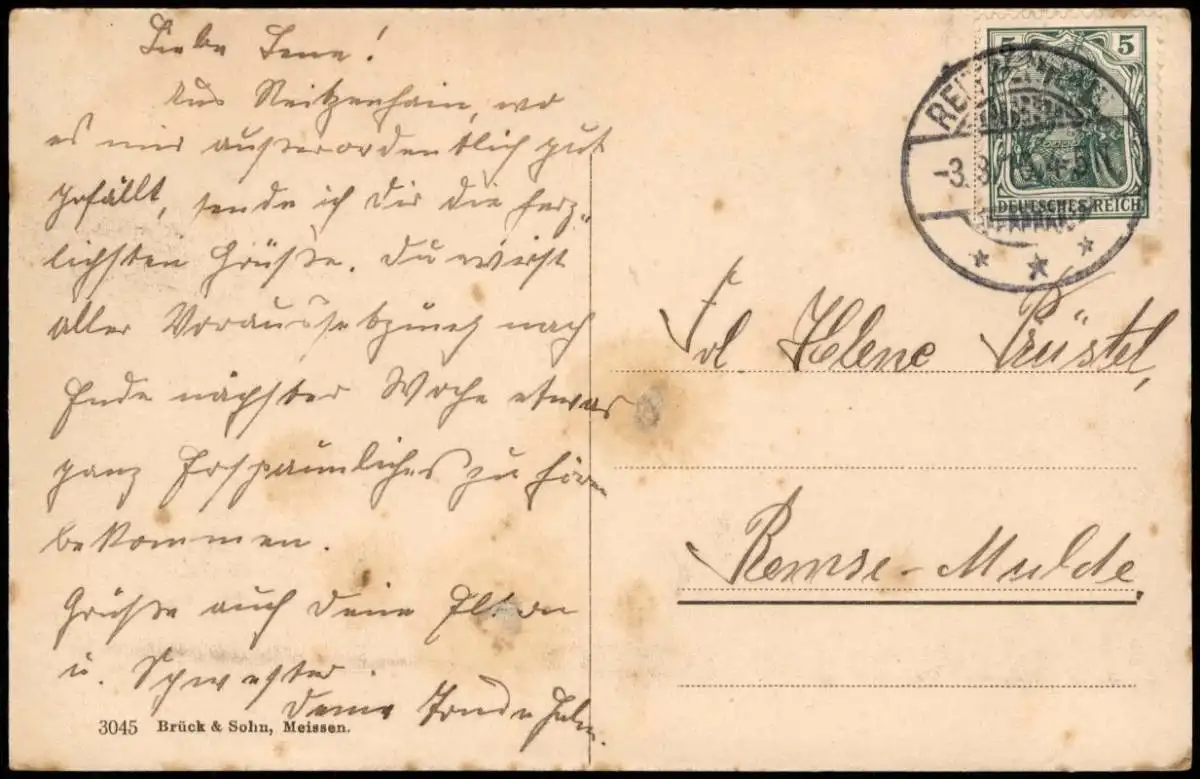 Liebe Lene!
Aus Reitzenhain, wo
es mir außerordentlich gut
gefällt, sende ich Dir die herz-
lichsten Grüße. Du wirst
aller Voraussetzung nach
Ende nächster Woche etwas
ganz Erspaunliches zu hören
bekommen.
Grüße auch deine Eltern
u. Schwester.
Deine
3045 Brück & Sohn, Meissen.
5 5
DEUTSCHES REICH
Frl. Helene Prüstel,
Remse-Mulde.